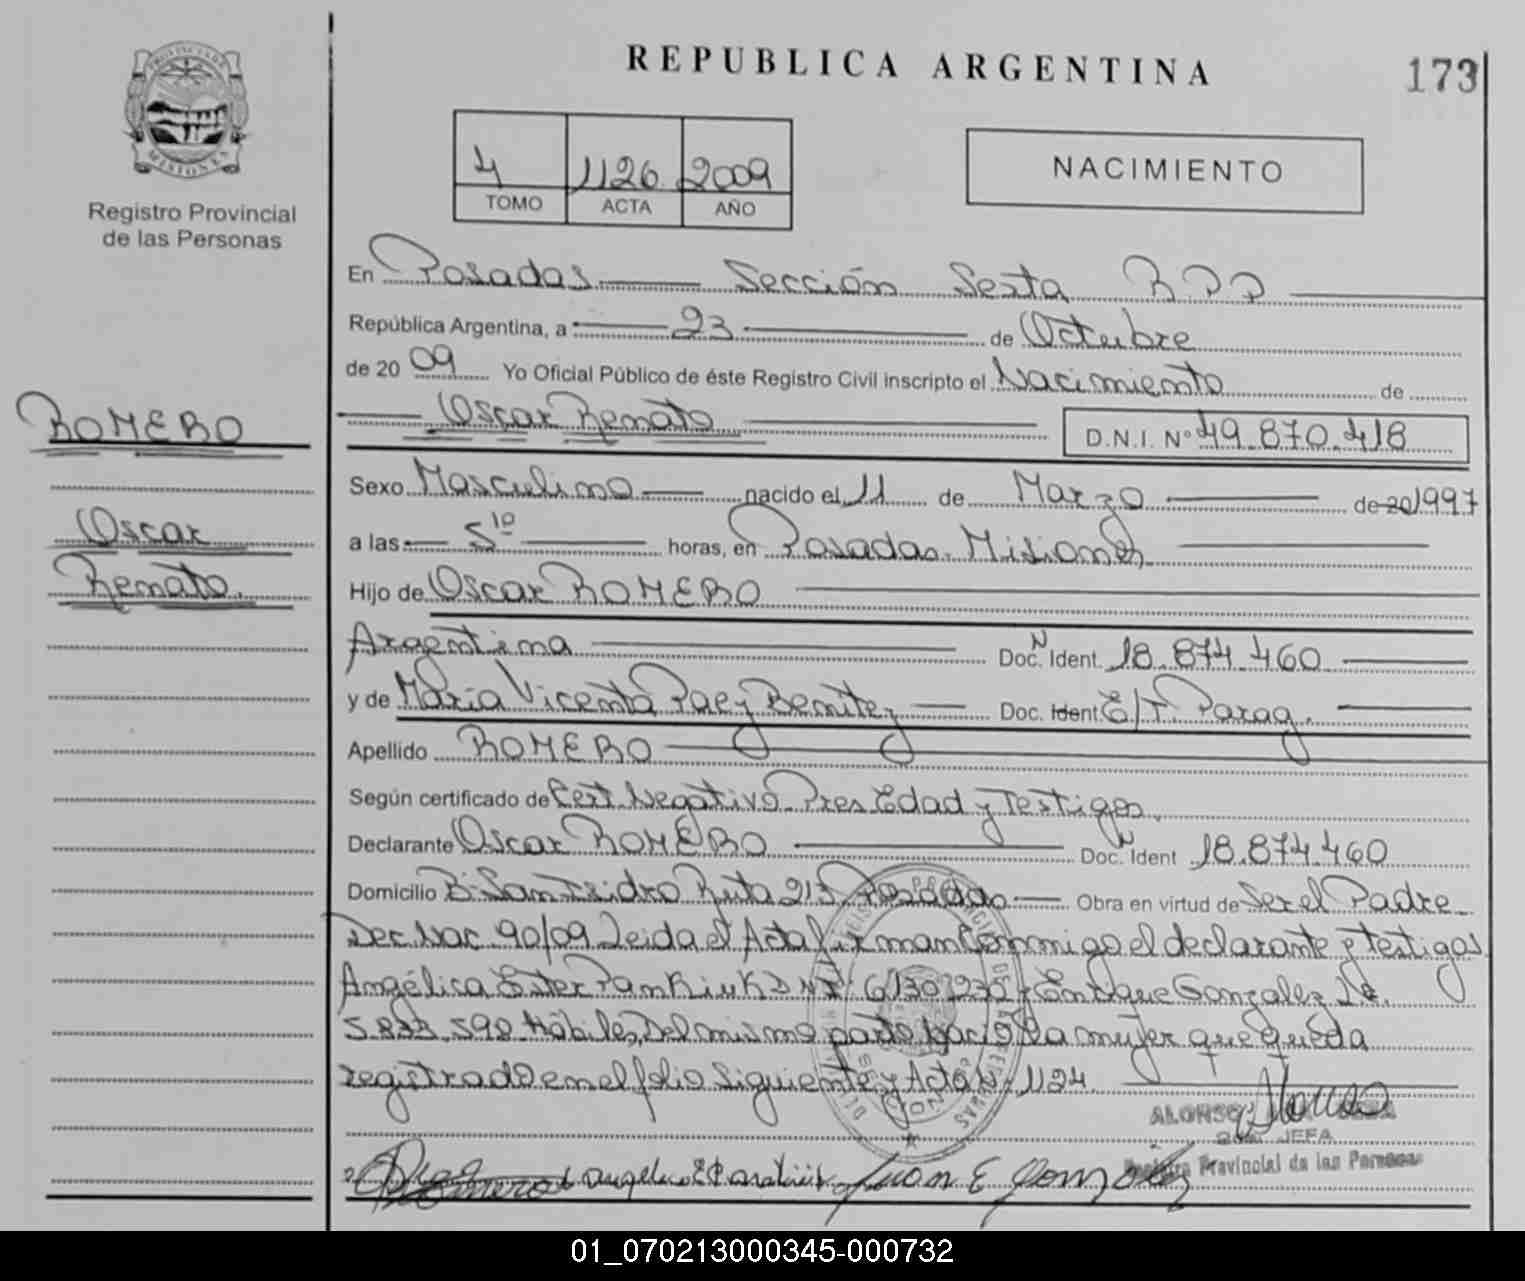 PROVINCIA DE
MISIONES
Registro Provincial
de las Personas
REPUBLICA ARGENTINA
173
4 1126 2009
TOMO ACTA AÑO
NACIMIENTO
En Posadas Sección Sexta R P P
República Argentina, a 23 de Octubre
de 20 09 Yo Oficial Público de éste Registro Civil inscripto el Nacimiento de
Oscar Renato D.N.I. Nº 49.870.418
ROMERO
Oscar
Renato.
Sexo Masculino nacido el 11 de Marzo de 20 1997
a las 5 10 horas, en Posadas. Misiones
Hijo de Oscar ROMERO
Argentina Doc. N Ident. 18.874.460
y de María Vicenta Paez Benitez Doc. Ident. E/T. Parag.
Apellido ROMERO
Según certificado de Cert. Negativo. Pres Edad y Testigos.
Declarante Oscar ROMERO Doc. N Ident 18.874.460
Domicilio Bº San Isidro Ruta 213 Posadas Obra en virtud de Ser el Padre
Dec. Nac. 90/09 Leida el Acta firman Conmigo el declarante y testigos
Angélica Ester DNI 6130 y Enrique Gonzalez
5.833.598 Hábiles, Del mismo parto nació la mujer que queda
registrado en el folio Siguiente y Acta Nº 1124.
ALONSO
JEFA
Registro Provincial de las Personas
Romero Juan E Gonzalez
01_070213000345-000732